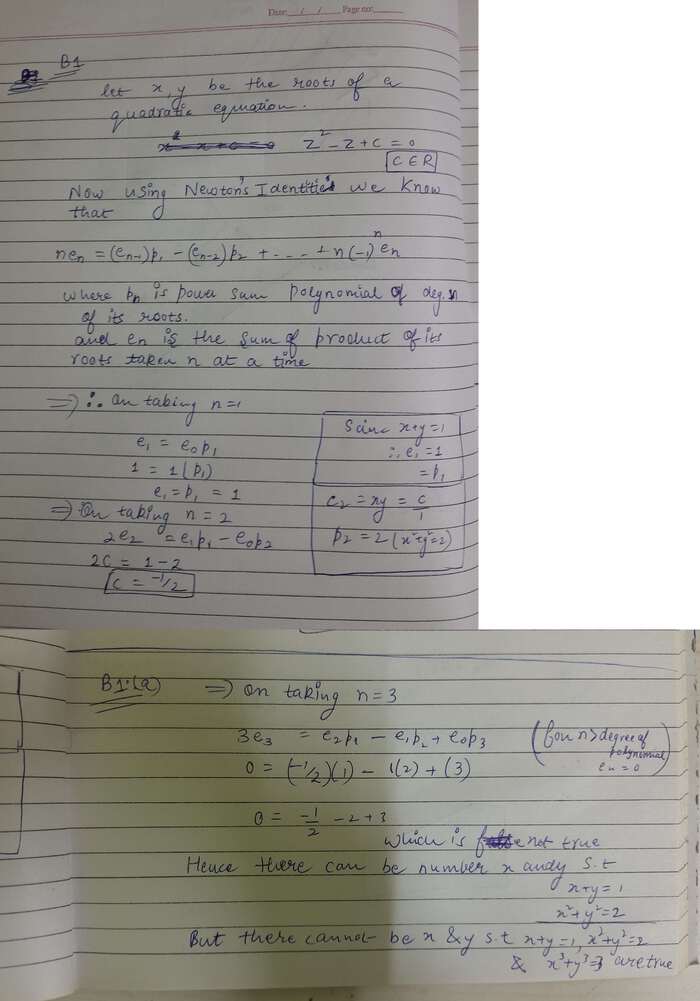 Date: / / Page no:
B1
let x, y be the roots of a
quadratic equation.
z² - z + c = 0
C ∈ R
Now using Newton's Identities we know
that
nen = (en-1)p1 - (en-2)p2 + ---- + n(-1)^n en
where pn is power sum polynomial of deg. n
of its roots.
and en is the sum of product of its
roots taken n at a time
=> ∴ On taking n=1
e1 = e0p1
1 = 1(p1)
e1 = p1 = 1
Sainc x+y=1
∴ e1 = 1
= p1
=> On taking n = 2
2e2 = e1p1 - e0p2
2C = 1 - 2
C = -1/2
e2 = xy = c/1
p2 = 2 (x²+y²=2)
B1.(a) => On taking n=3
3e3 = e2p1 - e1p2 + e0p3
(for n > degree of
polynomial
en = 0)
0 = (-1/2)(1) - 1(2) + (3)
0 = -1/2 - 2 + 3
which is not true
Hence there can be number x and y s.t
x+y = 1
x²+y²=2
But there cannot be x & y s.t x+y=1, x²+y²=2
& x³+y³=3 are true